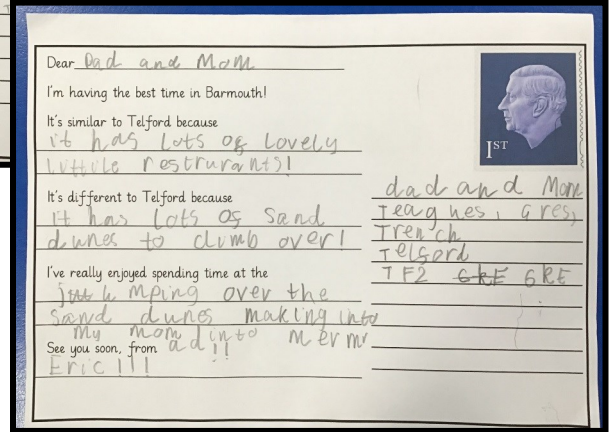 Dear Dad and Mom
I'm having the best time in Barmouth!
It's similar to Telford because
it has lots of lovely
little restrurants!
It's different to Telford because
it has lots of sand
dunes to climb over!
I've really enjoyed spending time at the
jumping over the
sand dunes making into
my mom into merm
ad!!
See you soon, from
Eric!!!
1ST
dad and Mom
Teagues, Gres,
Trench
Telford
TF2 6RE 6RE